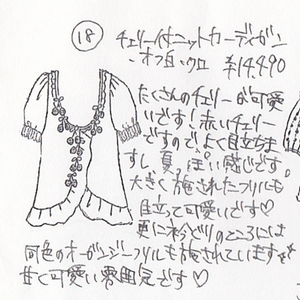 18
チェリー付ニットカーディガン
・オフ白・クロ ¥14,490
たくさんのチェリーが可愛
いです!赤いチェリー
ですので、よく目立ちま
すし、夏っぽい感じです。
大きく施されたフリルも
目立って可愛いです♡
更に衿ぐりのところには
同色のオーガンジーフリルも施されていますギ
甘く可愛い雰囲気です♡